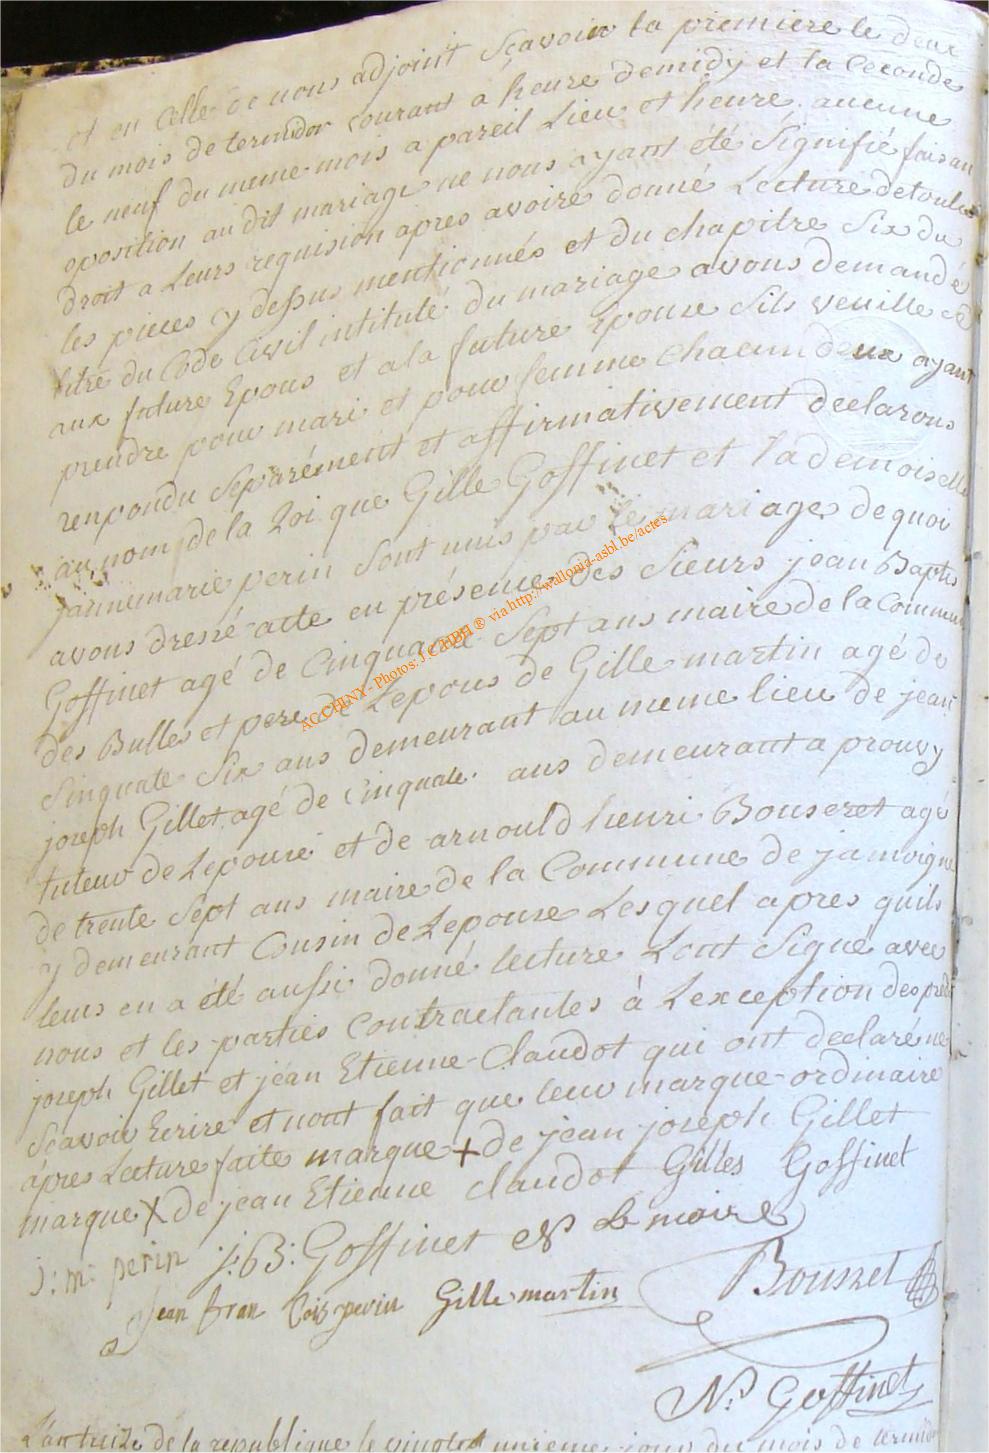 et en celle de nous adjoint Sçavoir la premiere le deux
du mois de termidor courant a heure demidy et la Ceconde
le neuf du meme mois a pareil Lieu et heure, aucune
oposition au dit mariage ne nous ayant été Signifié faisan
droit a Leurs requision apres avoire donné Lecture de toutes
les pieces y dessus mentionnés et du chapitre Six du
titre du Code Civil intitulé du mariage avons demandé
aux future Epous et a la future Epouse Sils veuille Se
prendre pour mari et pour femme chacun deux ayant
renpondu Separément et affirmativement declarons
au nom de la Loi que Gille Goffinet et Lademoiselle
jannemarie perin Sont unis par Le mariage, de quoi
avons dressé acte en présence des Sieurs jean Baptis
Goffinet agé de Cinquante Sept ans maire de la Commun
des Bulles et pere de Lepous de Gille martin age de
Sinquate Six ans demeurant au meme lieu de jean
joseph Gillet agé de Cinquate ans demeurant a prouvy
tuteur de Lepouse et de arnould henri Bouseret agé
de trente Sept ans maire de la Commune de jamoigne
y demeurant Cousin de Lepouse Lesquel apres quils
leurs en a été aussi donné lecture Lont Signé avec
nous et les parties Contractantes à Lexception des pred
joseph Gillet et jean Etienne Claudot qui ont declaré ne
Sçavoir Ecrire et nont fait que leur marque ordinaire
apres Lecture faite marque + de jean joseph Gillet
marque X de jean Etienne claudot Gilles Goffinet
J: m: perin j: B: Goffinet Le maire
jean fran Cois perin Gille martin Bouszet
N. Goffinet
L'an treize de la republique le vingt unieme jour du mois de termidor
AC CHINY - Photos: J.C. HBH ® via http://wallonia-asbl.be/actes